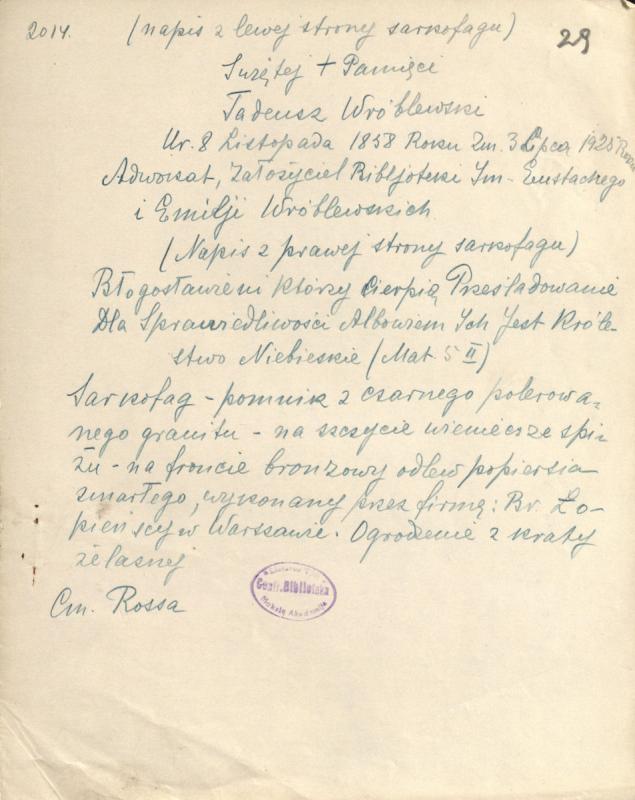 2014. (napis z lewej strony sarkofagu) 29
Świętej + Pamięci
Tadeusz Wróblewski
Ur. 8 Listopada 1858 Roku Zm. 3 Lipca 1925 Roku
Adwokat, Założyciel Bibljoteki Im. Eustachego
i Emilji Wróblewskich.
(Napis z prawej strony sarkofagu)
Błogosławieni Którzy Cierpią Prześladowanie
Dla Sprawiedliwości Albowiem Ich Jest Króle-
stwo Niebieskie (Mat 5 II)
Sarkofag - pomnik z czarnego polerowa-
nego granitu - na szczycie wieniec ze spi-
żu - na froncie bronzowy odlew popiersia
zmarłego, wykonany przez firmę: Br. Ło-
pieńscy w Warszawie. Ogrodzenie z kraty
żelaznej
Centr. Biblioteka
Mokslų Akademija
Cm. Rossa